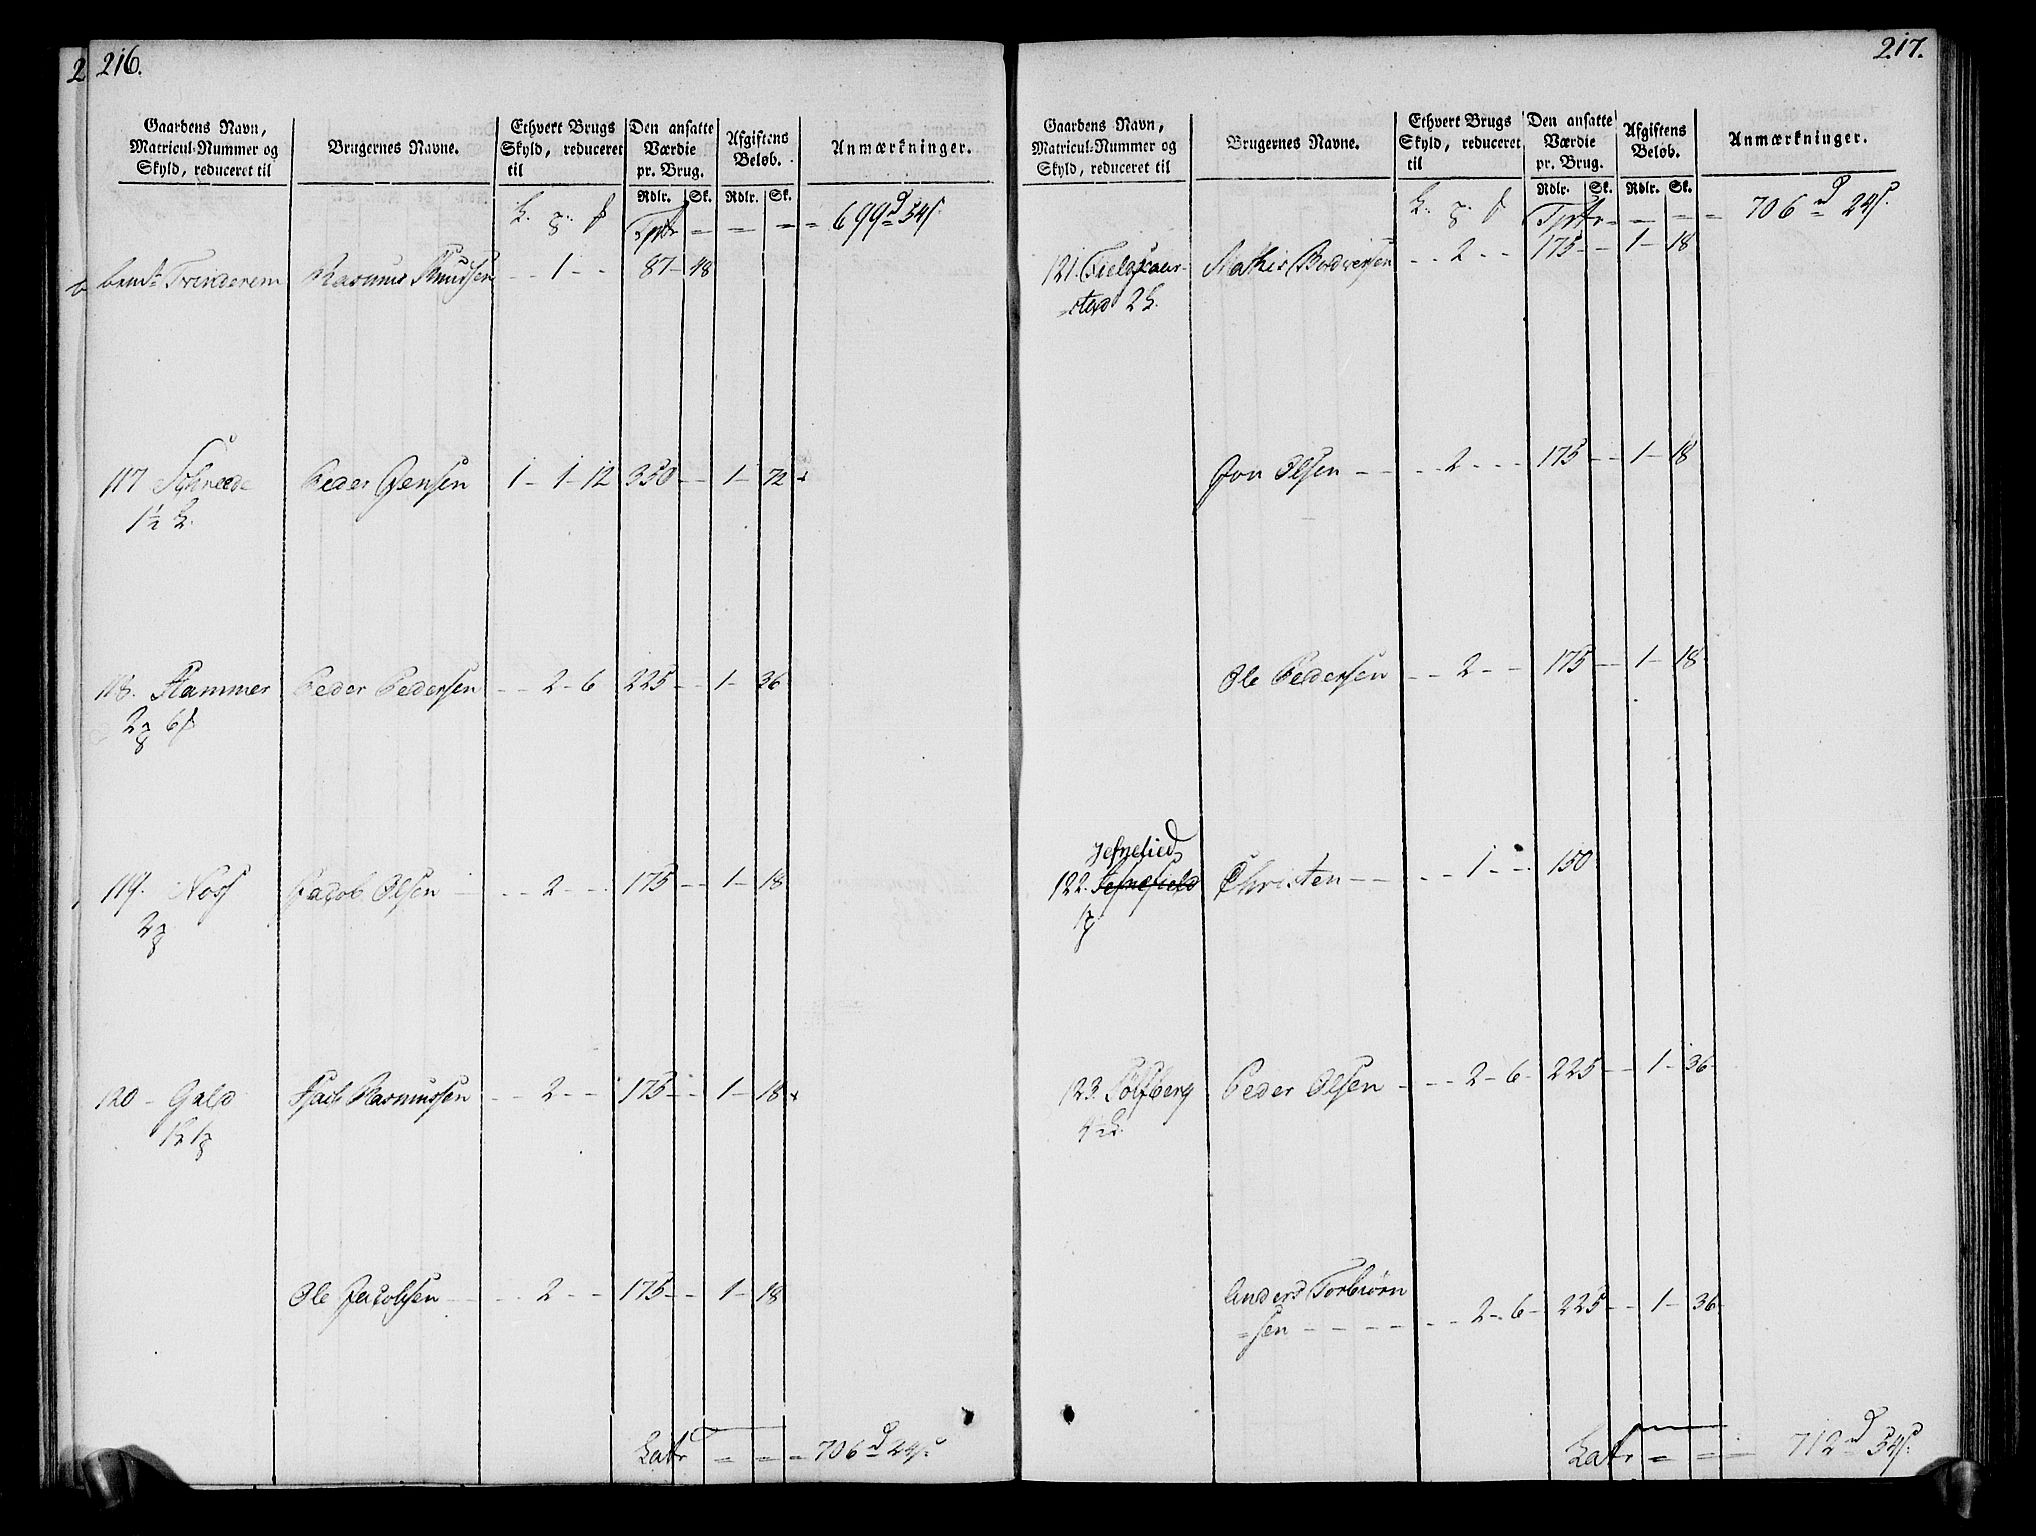 216.
Gaardens Navn, Matricul-Nummer og Skyld, reduceret til
Brugernes Navne.
Ethvert Brugs Skyld, reduceret til
Den ansatte Værdie pr. Brug.
Afgiftens Beløb.
Anmærkninger.
Rdlr. Sk. Rdlr. Sk.
Tptr - - - - 699 d 54 s.
Rasmus Knudsen - - 1 - - 87 - 48
117 Schreede Peder Jensen 1 - 1 - 12 350 - - 1 - 72
1½
118. Hammer Peder Pedersen - - 2 - 6 225 - - 1 - 36
2 6
119. Noss Jacob Olsen - - 2 - - 175 - - 1 - 18
2
120 - Gald Isach Rasmussen - - 2 - - 175 - - 1 - 18
Ole Jacobsen - - 2 - - 175 - - 1 - 18
Latr - - - 706 d 24 s.
217.
Gaardens Navn, Matricul-Nummer og Skyld, reduceret til
Brugernes Navne.
Ethvert Brugs Skyld, reduceret til
Den ansatte Værdie pr. Brug.
Afgiftens Beløb.
Anmærkninger.
Rdlr. Sk. Rdlr. Sk.
Tptr - - - - 706 d 24 s.
121. Mathis - - 2 - - 175 - - 1 - 18
stad 2
Jon Olsen - - - - 2 - - 175 - - 1 - 18
Ole Pedersen - - 2 - - 175 - - 1 - 18
122. Christen - - - - 1 - - 150
1
123. Sølfberg Peder Olsen - - - 2 - 6 - 225 - - 1 - 36
4½
Anders Torbiørn
-sen - - - - - - 2 - 6 - 225 - - 1 - 36
Latr - - - 712 d 54 s.